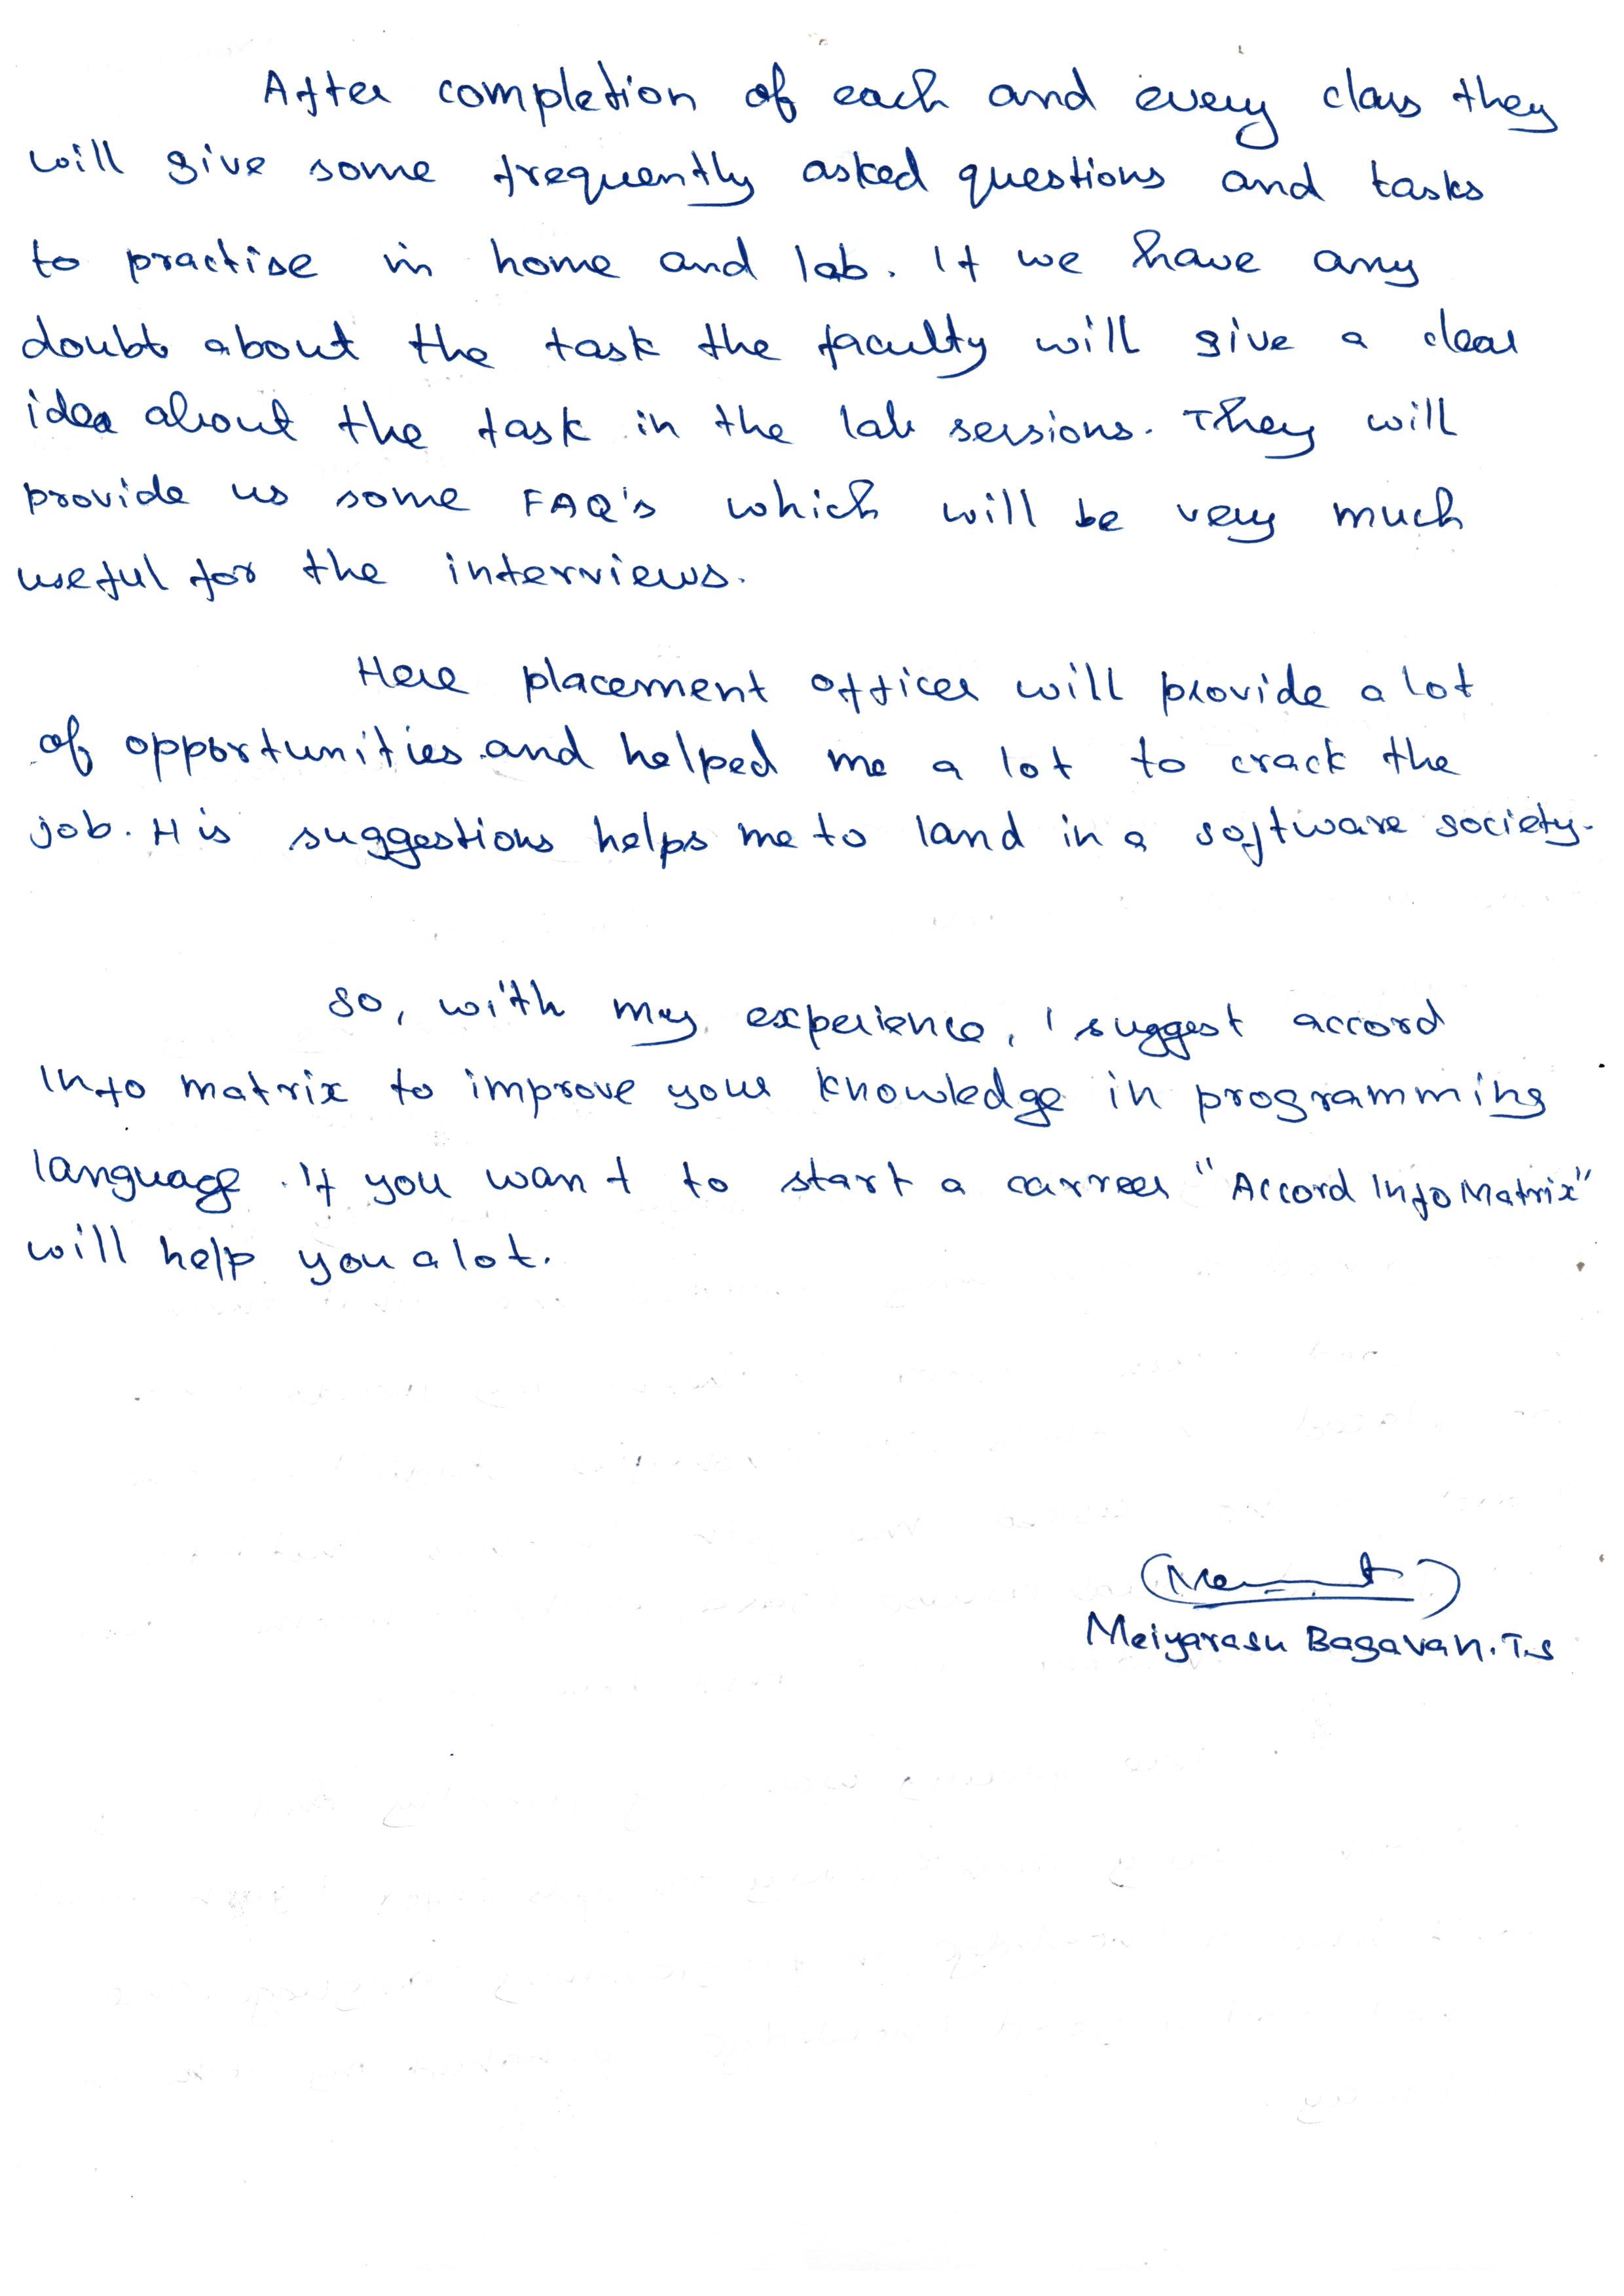 After completion of each and every class they
will give some frequently asked questions and tasks
to practise in home and lab. If we have any
doubts about the task the faculty will give a clear
idea about the task in the lab sessions. They will
provide us some FAQ's which will be very much
useful for the interviews.
Here placement officer will provide a lot
of opportunities and helped me a lot to crack the
job. His suggestions helps me to land in a software society.
So, with my experience, I suggest accord
Info matrix to improve your knowledge in programming
language. If you want to start a carreer "Accord Info Matrix"
will help you a lot.
Meiyarasu Bagavan. T.S